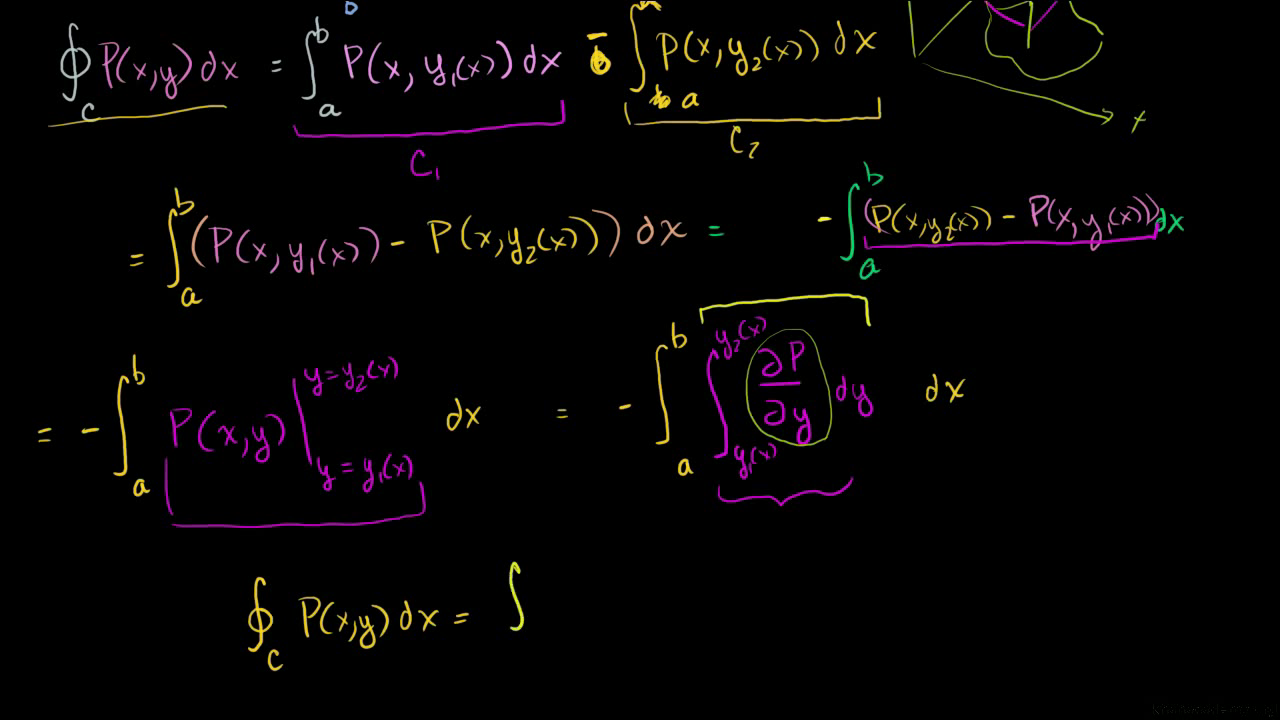 ∮_C P(x,y) dx = ∫_a^b P(x, y₁(x)) dx - ∫_a P(x, y₂(x)) dx
C₁ C₂ x
= ∫_a^b (P(x, y₁(x)) - P(x, y₂(x))) dx = - ∫_a^b (P(x, y₂(x)) - P(x, y₁(x))) dx
= - ∫_a^b P(x,y) |_{y = y₁(x)}^{y = y₂(x)} dx = - ∫_a^b ∫_{y₁(x)}^{y₂(x)} ∂P/∂y dy dx
∮_C P(x,y) dx = ∫